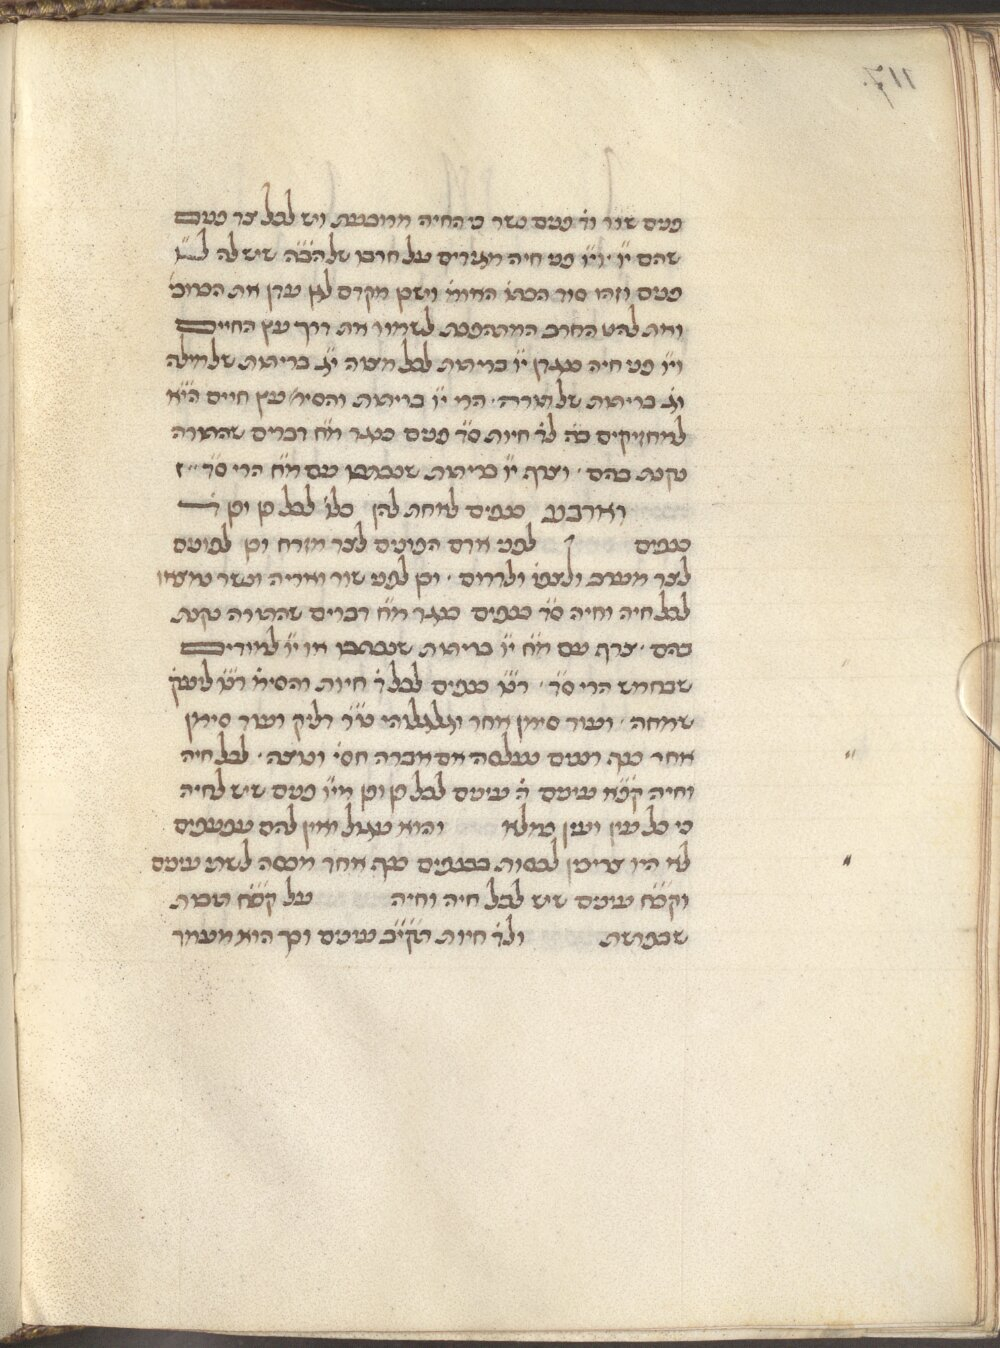 117
פנים שור וד׳ פנים נשר כי החיה מרובעת ויש לכל צד פנים
שהם י״ו וי״ו פני חיה מגדים על חרבו של הב״ה שיש לה י״ו
פנים וזהו סוד הכתו׳ האומ׳ וישכן מקדם לגן עדן את הכרובי׳
ואת להט החרב המתהפכת לשמור את דרך עץ החיים
וי״ו פני חיה כנגדן י״ו בריתות לכל מצוה י״ג בריתות של מילה
וג׳ בריתות של תורה הרי י״ו בריתות והסי׳ עץ חיים היא
למחזיקים בה לד׳ חיות ס״ד פנים כנגד מ״ח דברים שהתורה
נקנת בהם וצרף י״ו בריתות שנכרתו עם מ״ח הרי ס״ד
וארבע כנפים לאחת להן כלו׳ לכל פן ופן ד׳
כנפים לפני אדם הפונים לצד מזרח וכן לפונים
לצד מערב ולצפו׳ ולדרום וכן לפני שור ואריה ונשר נמצאו
לכל חיה וחיה ס״ד כנפים כנגד מ״ח דברים שהתורה נקנת
בהם צרף עם מ״ח י״ו בריתות שנכרתו או י״ו למודים
שבחמש הרי ס״ד רנ״ו כנפים לכל ד׳ חיות והסימ׳ רנ״ו ליעקב
שמחה ועוד סימן אחר וגלגלוהי נ״ו דליק ועוד סימן
אחר כנף רננים נעלסה אם אברה חסי׳ ונוצה לכל חיה
וחיה קכ״ח עינים ח׳ עינים לכל פן ופן מי״ו פנים שיש לחיה
כי כל עין ועין מלא והוא עגול ואין להם עפעפים
לא היו צריכין לכסות בכנפים כנף אחד מכסה לשתי עינים
וקכ״ח עינים שיש לכל חיה וחיה על קכ״ח תבות
שבפרשת ולד׳ חיות תקי״ב עינים וכך הוא מעמד